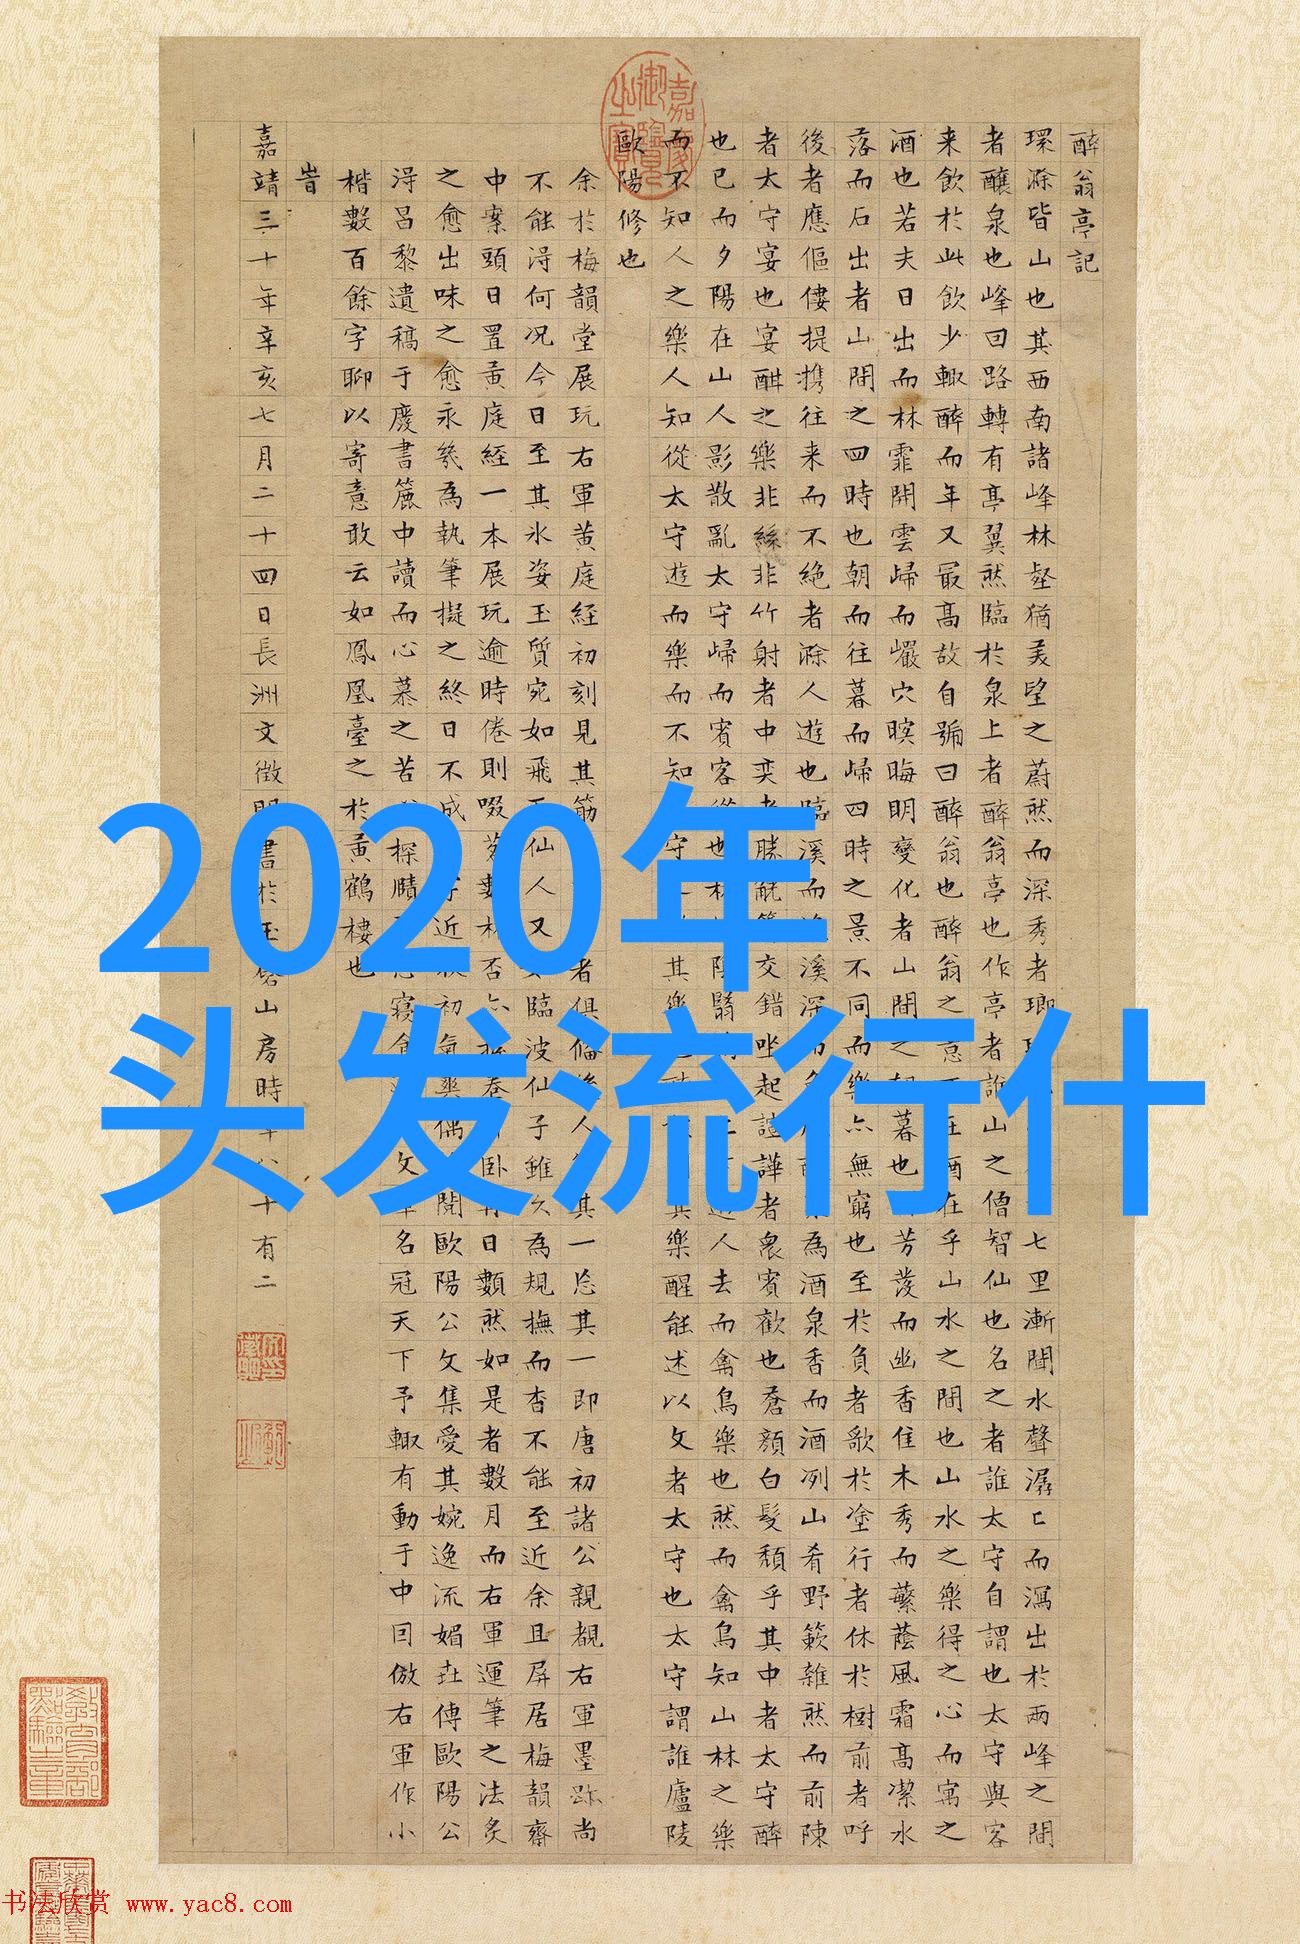 醉翁亭記
環滁皆山也其西南諸峰林壑猶美望之蔚然而深秀者瑯七里漸聞水聲潺〻而瀉出於兩峰之間
者釀泉也峰回路轉有亭翼然臨於泉上者醉翁亭也作亭者誰山之僧智仙也名之者誰太守自謂也太守與客
来飲於此飲少輒醉而年又最高故自號曰醉翁也醉翁之意在酒在乎山水之間也山水之樂得之心而寓之
酒也若夫日出而林霏開雲歸而巖穴暝晦明變化者山間之暮也芳發而幽香佳木秀而蘩蔭風霜高潔水
落而石出者山間之四時也朝而往暮而歸四時之景不同而樂亦無窮也至於負者歌於塗行者休於樹前者呼
後者應傴僂提攜往来而不絶者滁人遊也臨溪而溪深為酒泉香而酒冽山肴野簌雜然而前陳
者太守宴也宴酣之樂非絲非竹射者中奕者勝觥籌交錯坐起諠譁者衆賓歡也蒼顔白髮頹乎其中者太守醉
也已而夕陽在山人影散亂太守歸而賓客從也林陰翳人去而禽鳥樂也然而禽鳥知山林之樂
而不知人之樂人知從太守遊而樂而不知守其樂其樂醒能述以文者太守也太守謂誰廬陵
歐陽修也
余於梅韻堂展玩右軍黄庭經初刻見其筋者俱備後人其一忩其一即唐初諸公親覩右軍墨跡尚
不能淂何况今日至其氷姿玉質宛如飛仙人又臨波仙子雖久為規撫而杳不能至近余且屏居梅韻齋
中案頭日置黄庭經一本展玩逾時倦則啜茗數杯否卷卧日數然如是者數月而右軍運筆之法炙
之愈出味之愈永幾為執筆擬之終日不成字近秋初氣爽偶閱歐陽公文集愛其婉逸流媚嘉傳歐陽公
淂昌黎遺稿于廢書簏中讀而心慕之苦探賾寢食文章名冠天下予輙有動于中因倣右軍作小
楷數百餘字聊以寄意敢云如鳳凰臺之於黄鶴樓也
旹
嘉靖三十年辛亥七月二十四日長洲文徵明書於玉磬山房時年八十有二
2020年
头发流行什
书法欣赏 www.yac8.com